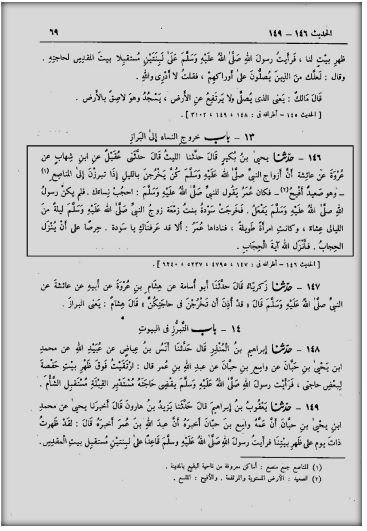 الحديث ١٤٦ - ١٤٩
٦٩
ظهرِ بيْتٍ لنا ، فرأيتُ رسولَ اللهِ صَلَّى اللهُ عَلَيْهِ وَسَلَّمَ عَلَى لَبِنَتَيْنِ مُستقبِلا بيتَ المقدِسِ لحاجتِهِ .
وقال : لَعلَّكَ منَ الذينَ يُصَلُّونَ على أوراكِهِمْ ، فقلت لا أدْرِى واللهِ
قال مَالكٌ : يَعنى الذى يُصلِّى ولا يَرتفِعُ عنِ الأرضِ ، يَسْجُدُ وهوَ لاصِقٌ بالأرضِ .
[ الحديث ١٤٥ - أطرافه فى : ١٤٨ ، ١٤٩ ، ٣١٠٢ ]
١٣ - باب خروجِ النساءِ إلى البَرازِ
١٤٦ - حدّثنا يحيى بنُ بُكيرٍ قالَ حدَّثنا الليثُ قالَ حدَّثنى عُقَيلٌ عنِ ابنِ شهابٍ عن
عُروةَ عن عائِشةَ أنَّ أزواجَ النبىِّ صَلَّى اللهُ عَلَيْهِ وَسَلَّمَ كُنَّ يَخْرُجنَ بالليلِ إذا تبرزنَ إلى المَناصِعِ (١)
- وهو صَعيدٌ أفيَحُ (٢) - فكان عمرُ يَقول للنبىِّ صَلَّى اللهُ عَلَيْهِ وَسَلَّمَ : احجُبْ نِساءكَ . فلم يكنْ رسولُ
اللهِ صَلَّى اللهُ عَلَيْهِ وَسَلَّمَ يَفعَلُ . فخرَجتْ سَوْدةُ بنتُ زمْعةَ زوجُ النبىِّ صَلَّى اللهُ عَلَيْهِ وَسَلَّمَ ليلةً منَ
الليالى عِشاءً ، وكانتِ امرأةً طويلةً ، فناداها عُمرُ : ألا قد عَرَفناكِ يا سودةُ . حِرصًا على أنْ يَنْزِلَ
الحِجابُ . فأنْزَلَ اللهُ آيةَ الحِجابِ .
[ الحديث ١٤٦ - أطرافه فى : ١٤٧ ، ٤٧٩٥ ، ٥٢٣٧ ، ٦٢٤٠ ]
١٤٧ - حدّثنا زكَرِيّاءُ قالَ حدَّثنا أبو أُسامةَ عن هِشامِ بنِ عُروةَ عن أبيهِ عن عائشةَ عنِ
النبىِّ صَلَّى اللهُ عَلَيْهِ وَسَلَّمَ قالَ « قد أُذِنَ أنْ تَخرُجْنَ فى حاجَتِكنَّ » قالَ هِشامٌ : يَعْنى البرازَ .
١٤ - باب التَّبرُّزِ فى البيوتِ
١٤٨ - حدّثنا إبراهيمُ بنُ المُنْذِرِ قالَ حدَّثَنا أنَسُ بنُ عِياضٍ عن عُبَيدِ اللهِ عن محمدِ
ابنِ يَحْيى بنِ حَبَّانَ عن واسِعِ بنِ حبَّانَ عن عبدِ اللهِ بنِ عمرَ قال : ارْتَقَيْتُ فَوقَ ظَهرِ بيتِ حَفْصةَ
لِبعضِ حاجتى ، فرأيتُ رسولَ اللهِ صَلَّى اللهُ عَلَيْهِ وَسَلَّمَ يَقضِى حاجتَهُ مُسْتَدْبِرَ القِبْلةِ مُسْتَقْبِلَ الشأْمِ .
١٤٩ - حدّثنا يَعْقوبُ بنُ إبراهيمَ قالَ حدَّثنا يَزيدُ بنُ هارونَ قالَ أخبرَنا يحيى عن محمدِ
ابنِ يحيى بنِ حَبانَ أنَّ عمَّهُ واسِعَ بنَ حَبَّانَ أخبرَهُ أنَّ عبدَ اللهِ بنَ عمرَ أخبرَهُ قالَ : لقدْ ظَهَرتُ
ذاتَ يومٍ على ظهرِ بيتِنا فرأيتُ رسولَ اللهِ صَلَّى اللهُ عَلَيْهِ وَسَلَّمَ قاعِدًا على لبِنتَينِ مُستقبِلَ بيتِ المقدِسِ .
(١) المناصع جمع منصع : أماكن معروفة من ناحية البقيع بالمدينة .
(٢) الصعيد : الأرض المستوية والمرتفعة . والأفيح : المتسع .